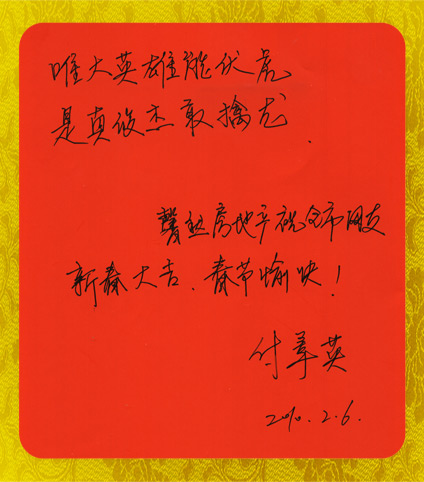 唯大英雄能伏虎
是真俊杰敢擒龙.
馨房地产祝全市网友
新春大吉、春节愉快!
付英
2010.2.6.